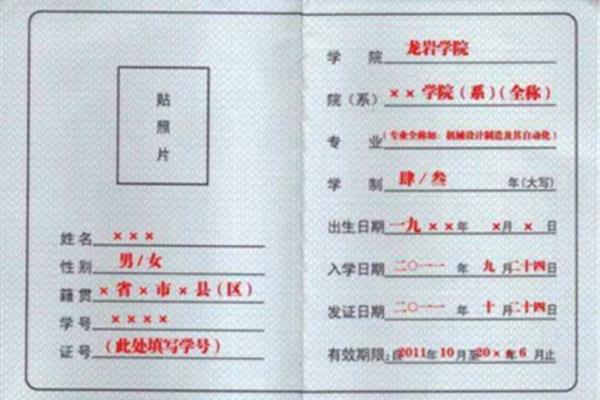 贴
照
片
姓名 × × ×
性别 男/女
籍贯 × 省 × 市 × 县(区)
学号 × × × ×
证号 (此处填写学号)
学 院 龙岩学院
院(系) × × 学院(系)(全称)
专 业 (专业全称如:机械设计制造及其自动化)
学 制 肆/叁 年(大写)
出生日期 一九 × × 年 × 月 × 日
入学日期 二〇一一 年 九 月 二十四 日
发证日期 二〇一一 年 十 月 二十四 日
有效期限:自2011年10月至20×年6月止